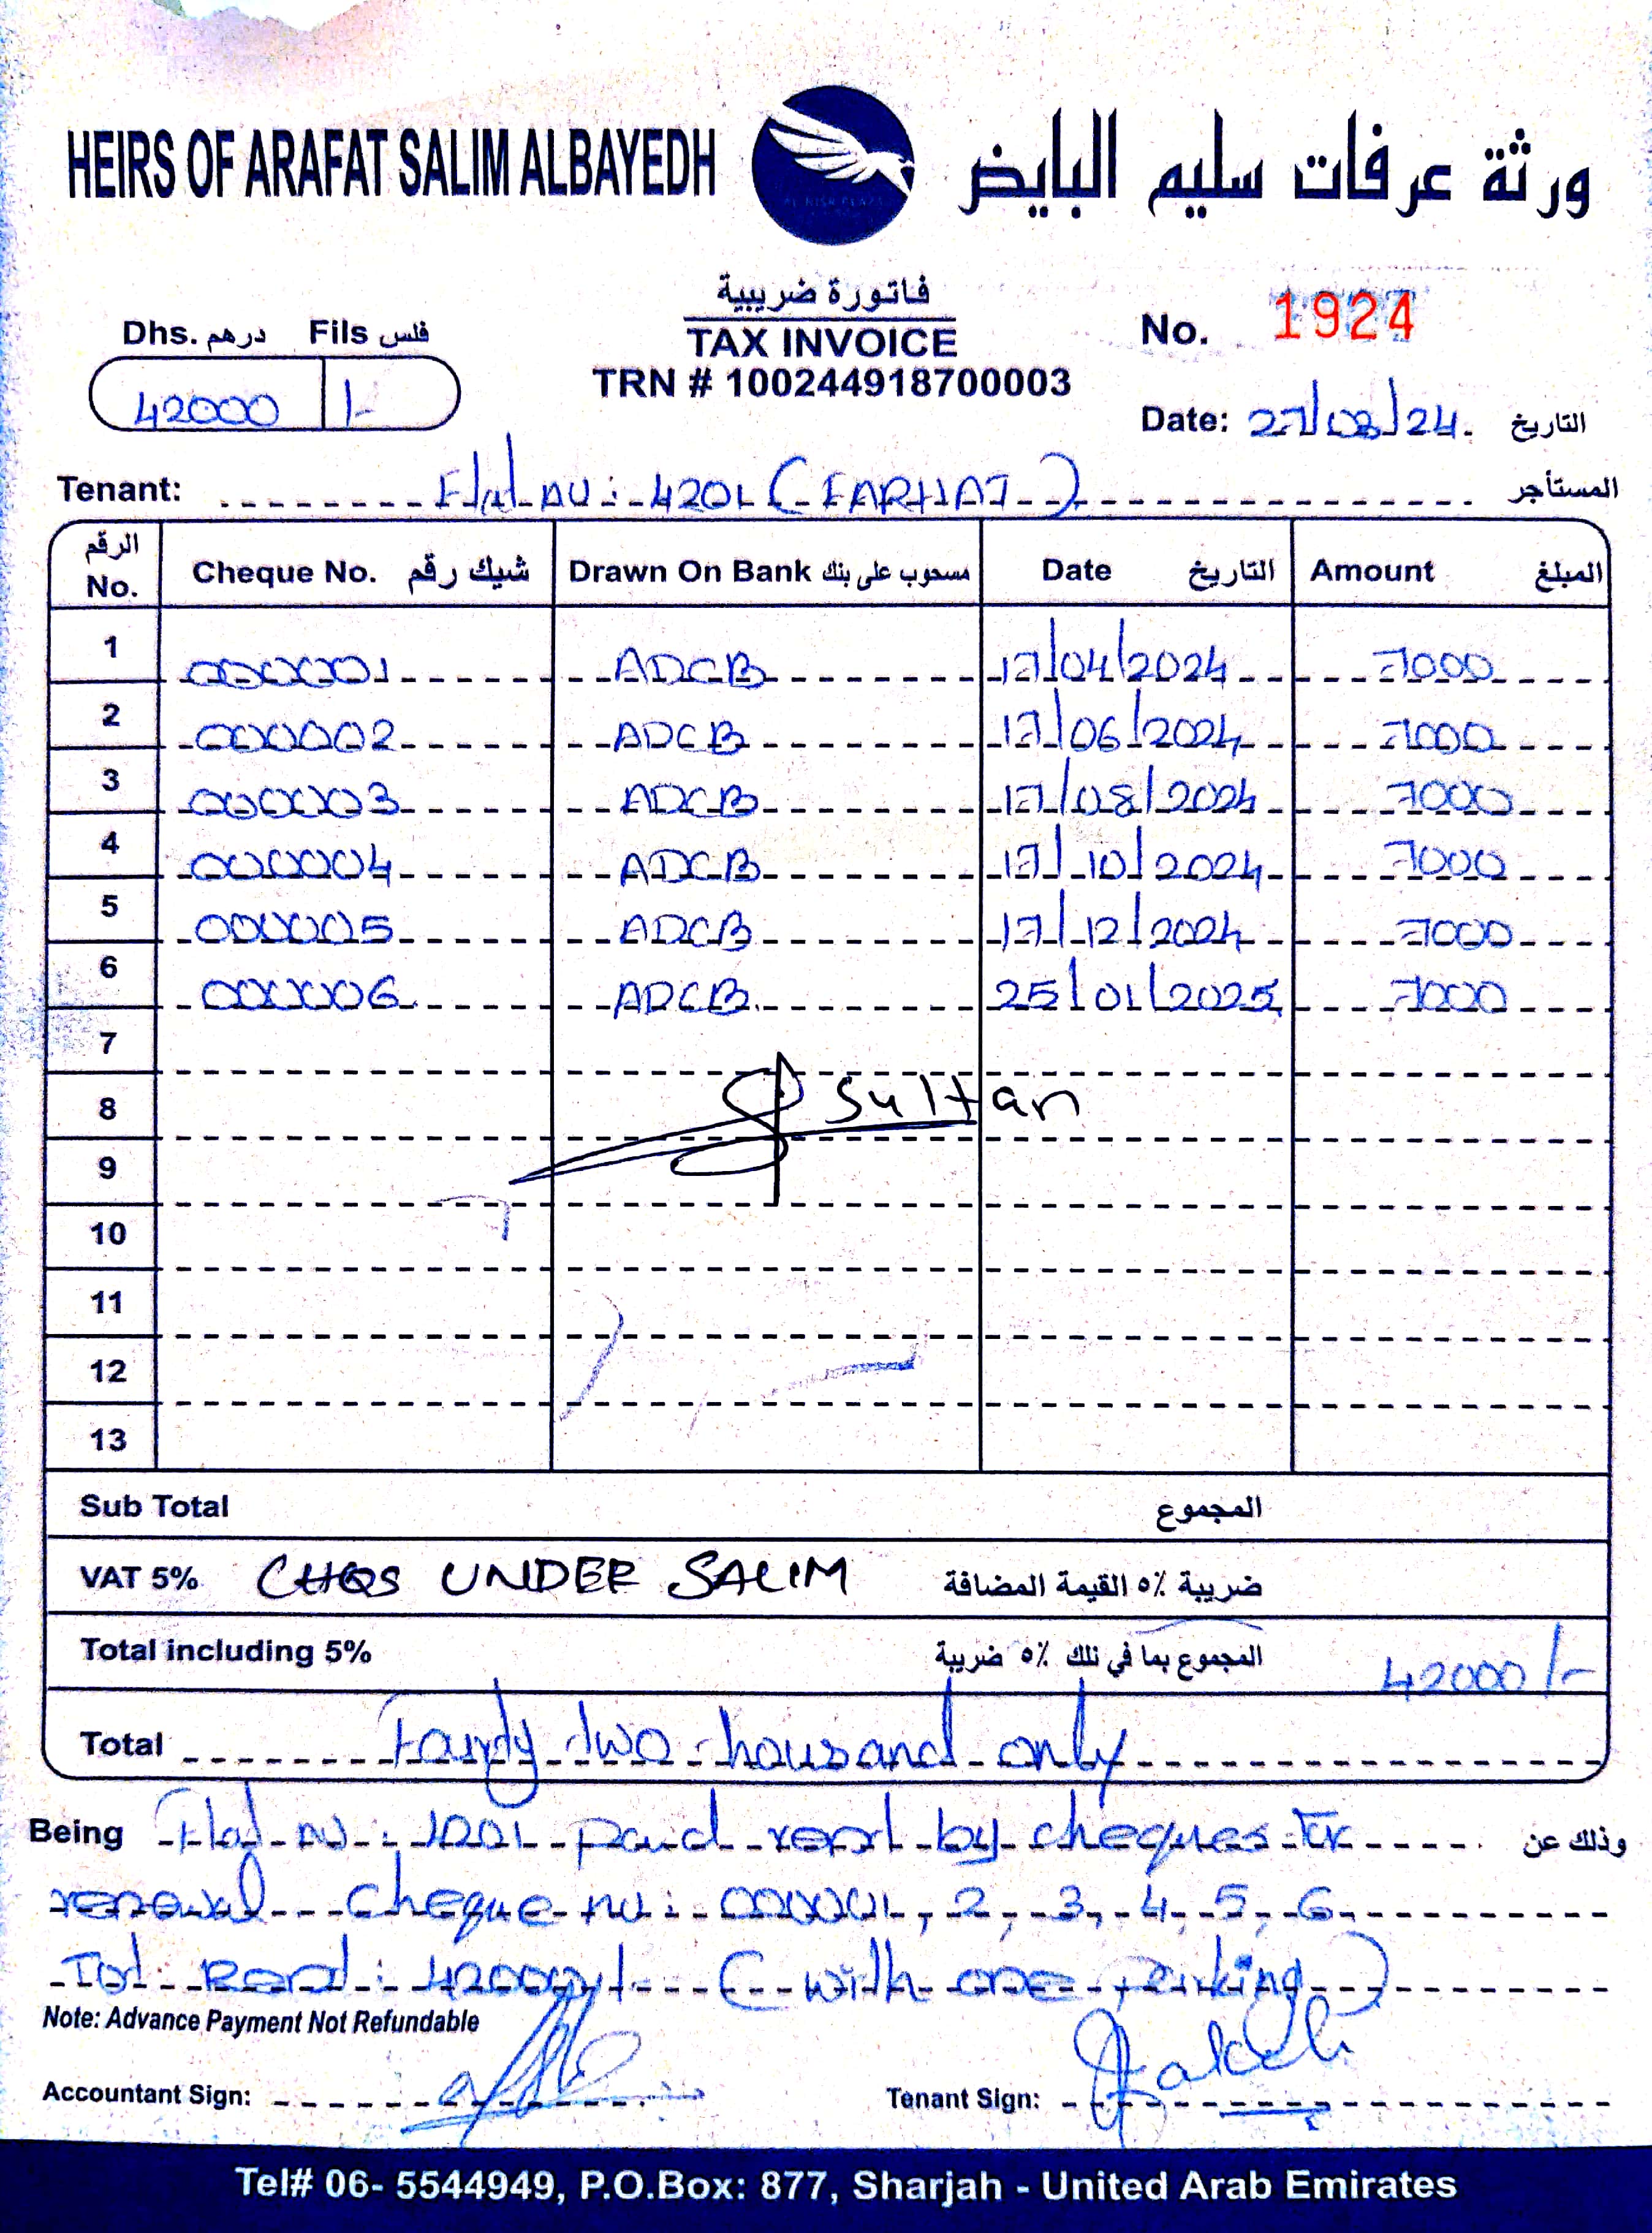 HEIRS OF ARAFAT SALIM ALBAYEDH
ورثة عرفات سليم البايض
فاتورة ضريبية
TAX INVOICE
TRN # 100244918700003
Dhs. درهم Fils فلس
42000 /-
No. 1924
Date: 27/08/24. التاريخ
Tenant: Flat no: 4201 (FARHAT) المستأجر
الرقم No. Cheque No. شيك رقم Drawn On Bank مسحوب على بنك Date التاريخ Amount المبلغ
1 000001 ADCB 17/04/2024 7000
2 000002 ADCB 17/06/2024 7000
3 000003 ADCB 17/08/2024 7000
4 000004 ADCB 17/10/2024 7000
5 000005 ADCB 17/12/2024 7000
6 000006 ADCB 25/01/2025 7000
7
8 Sultan
9
10
11
12
13
Sub Total المجموع
VAT 5% CHQS UNDER SALIM ضريبة ٥٪ القيمة المضافة
Total including 5% المجموع بما في ذلك ٥٪ ضريبة 42000/-
Total two thousand only
Being Flat no: paid rent by cheques for وذلك عن
renewal cheque no: 000001, 2, 3, 4, 5, 6.
Tot Rent: 42000/- (with one parking)
Note: Advance Payment Not Refundable
Accountant Sign:
Tenant Sign:
Tel# 06- 5544949, P.O.Box: 877, Sharjah - United Arab Emirates